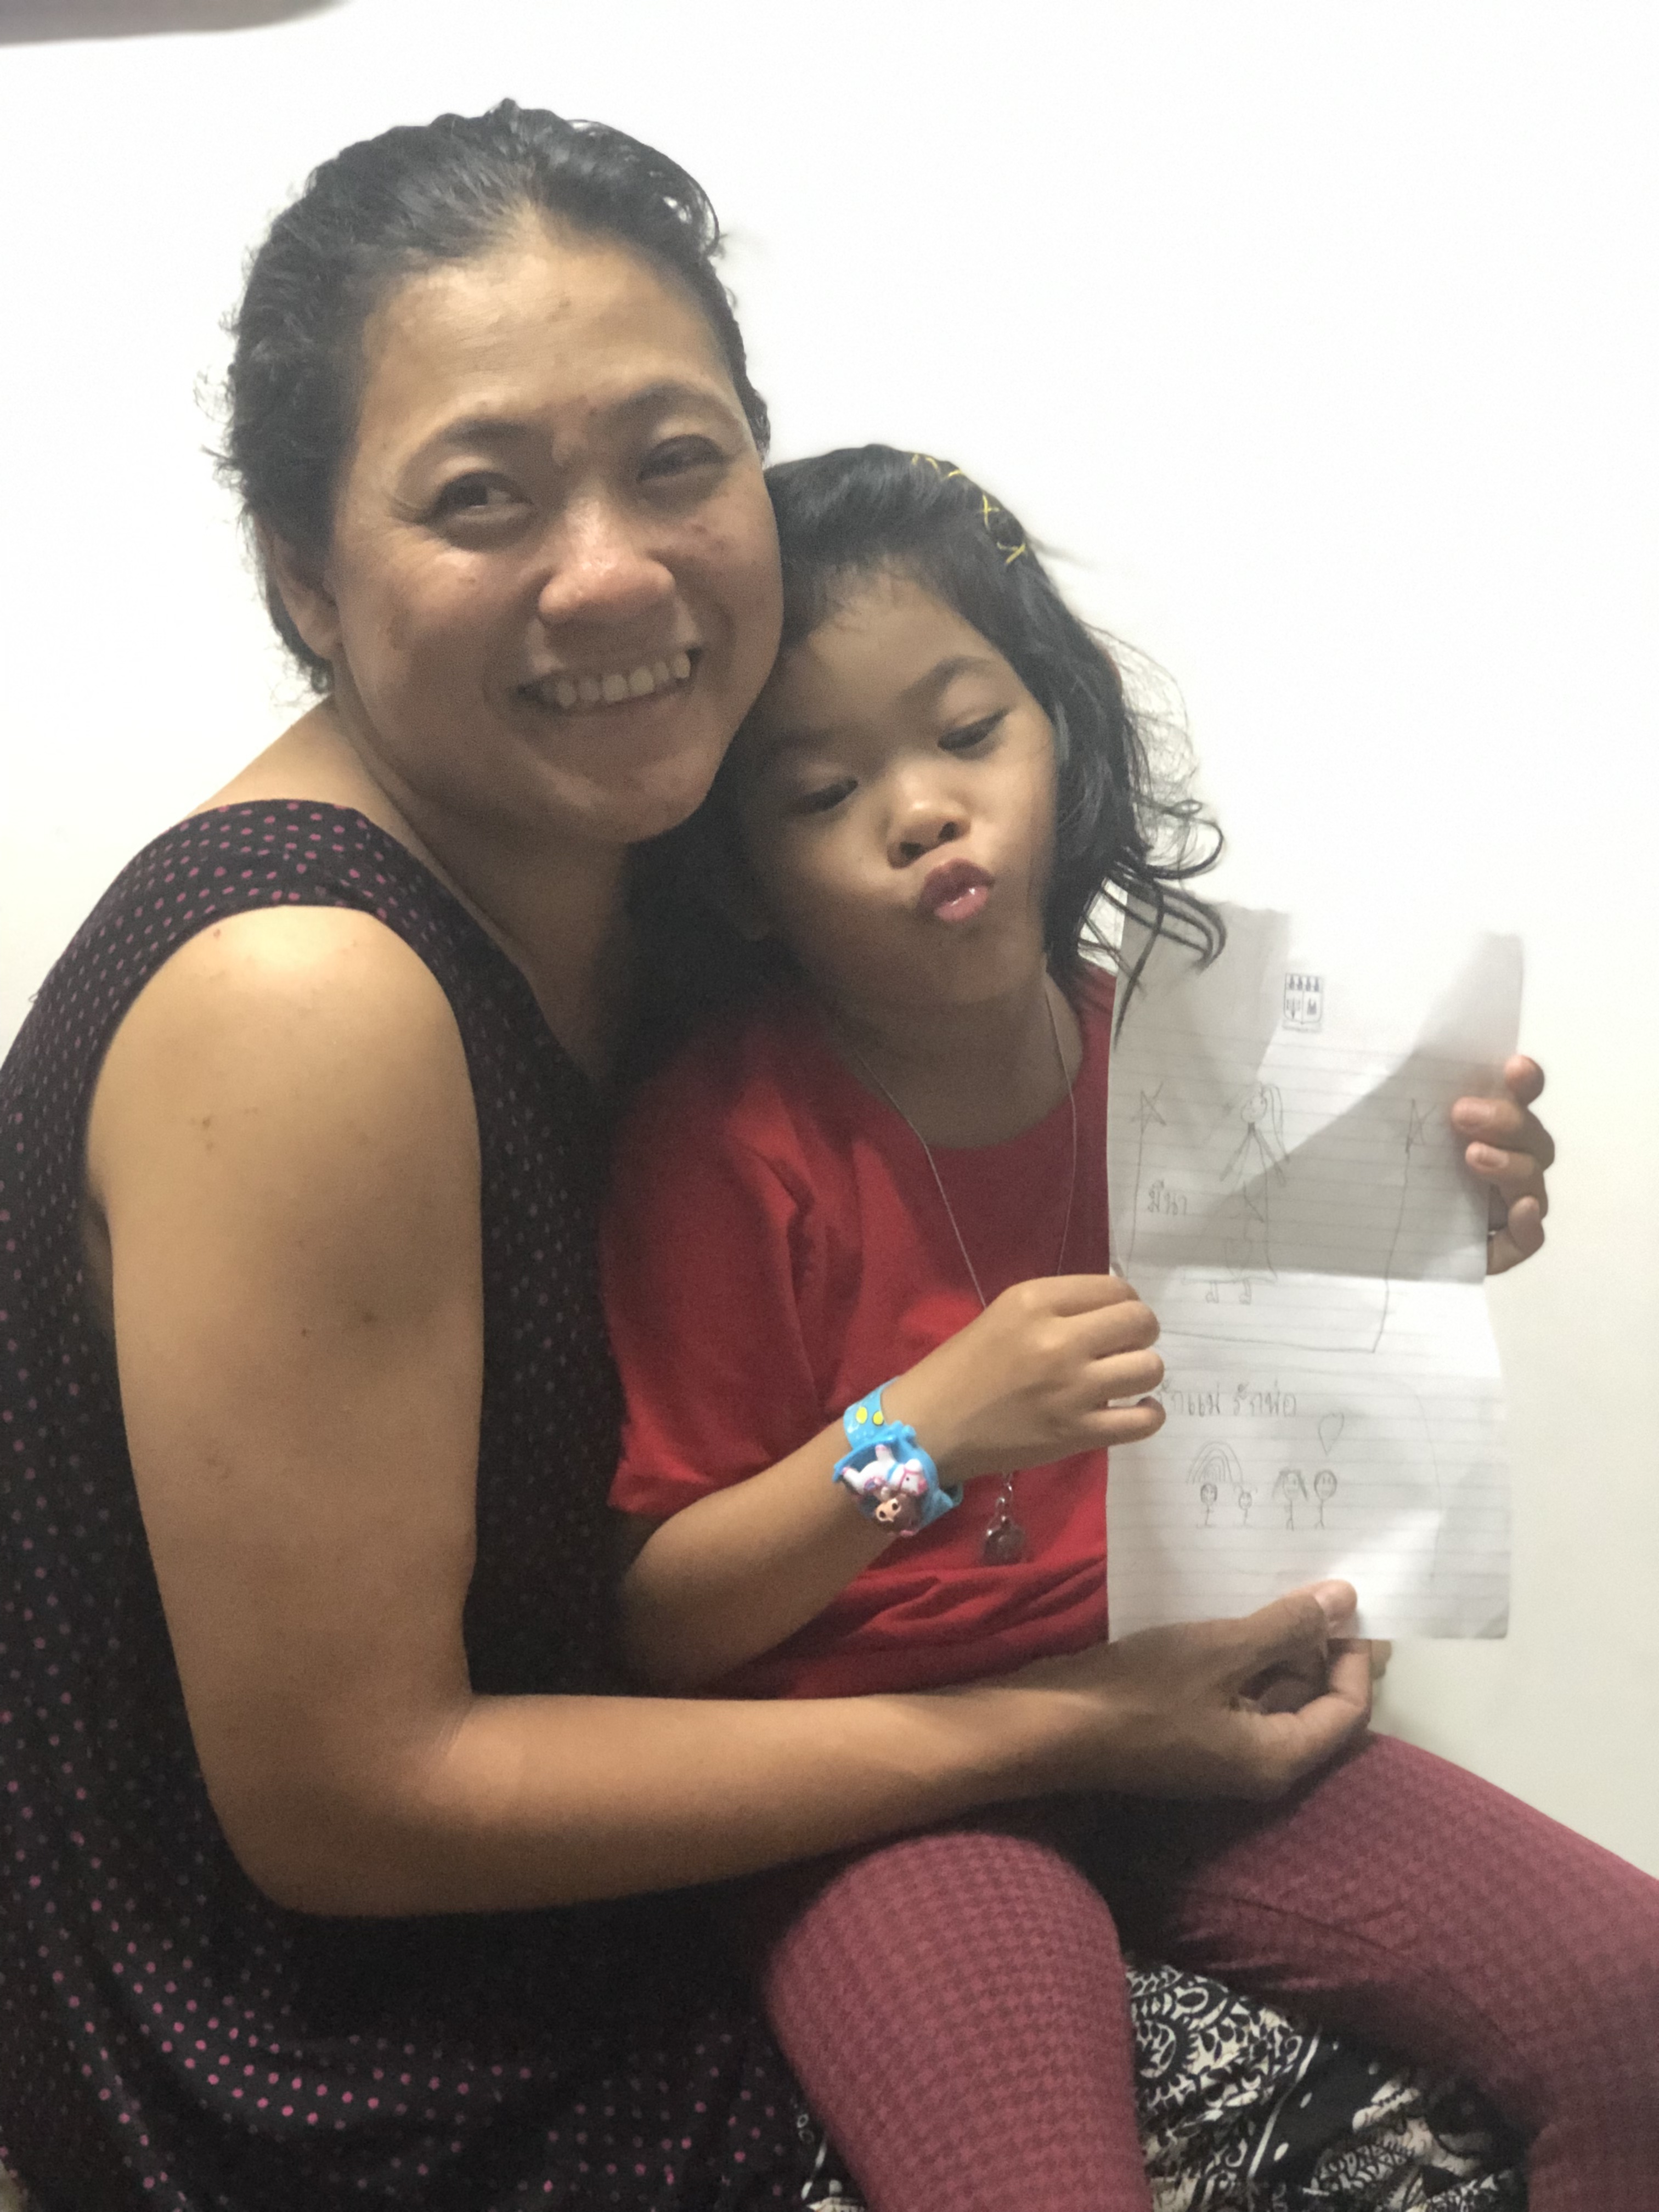 มีนา
รักแม่ รักพ่อ